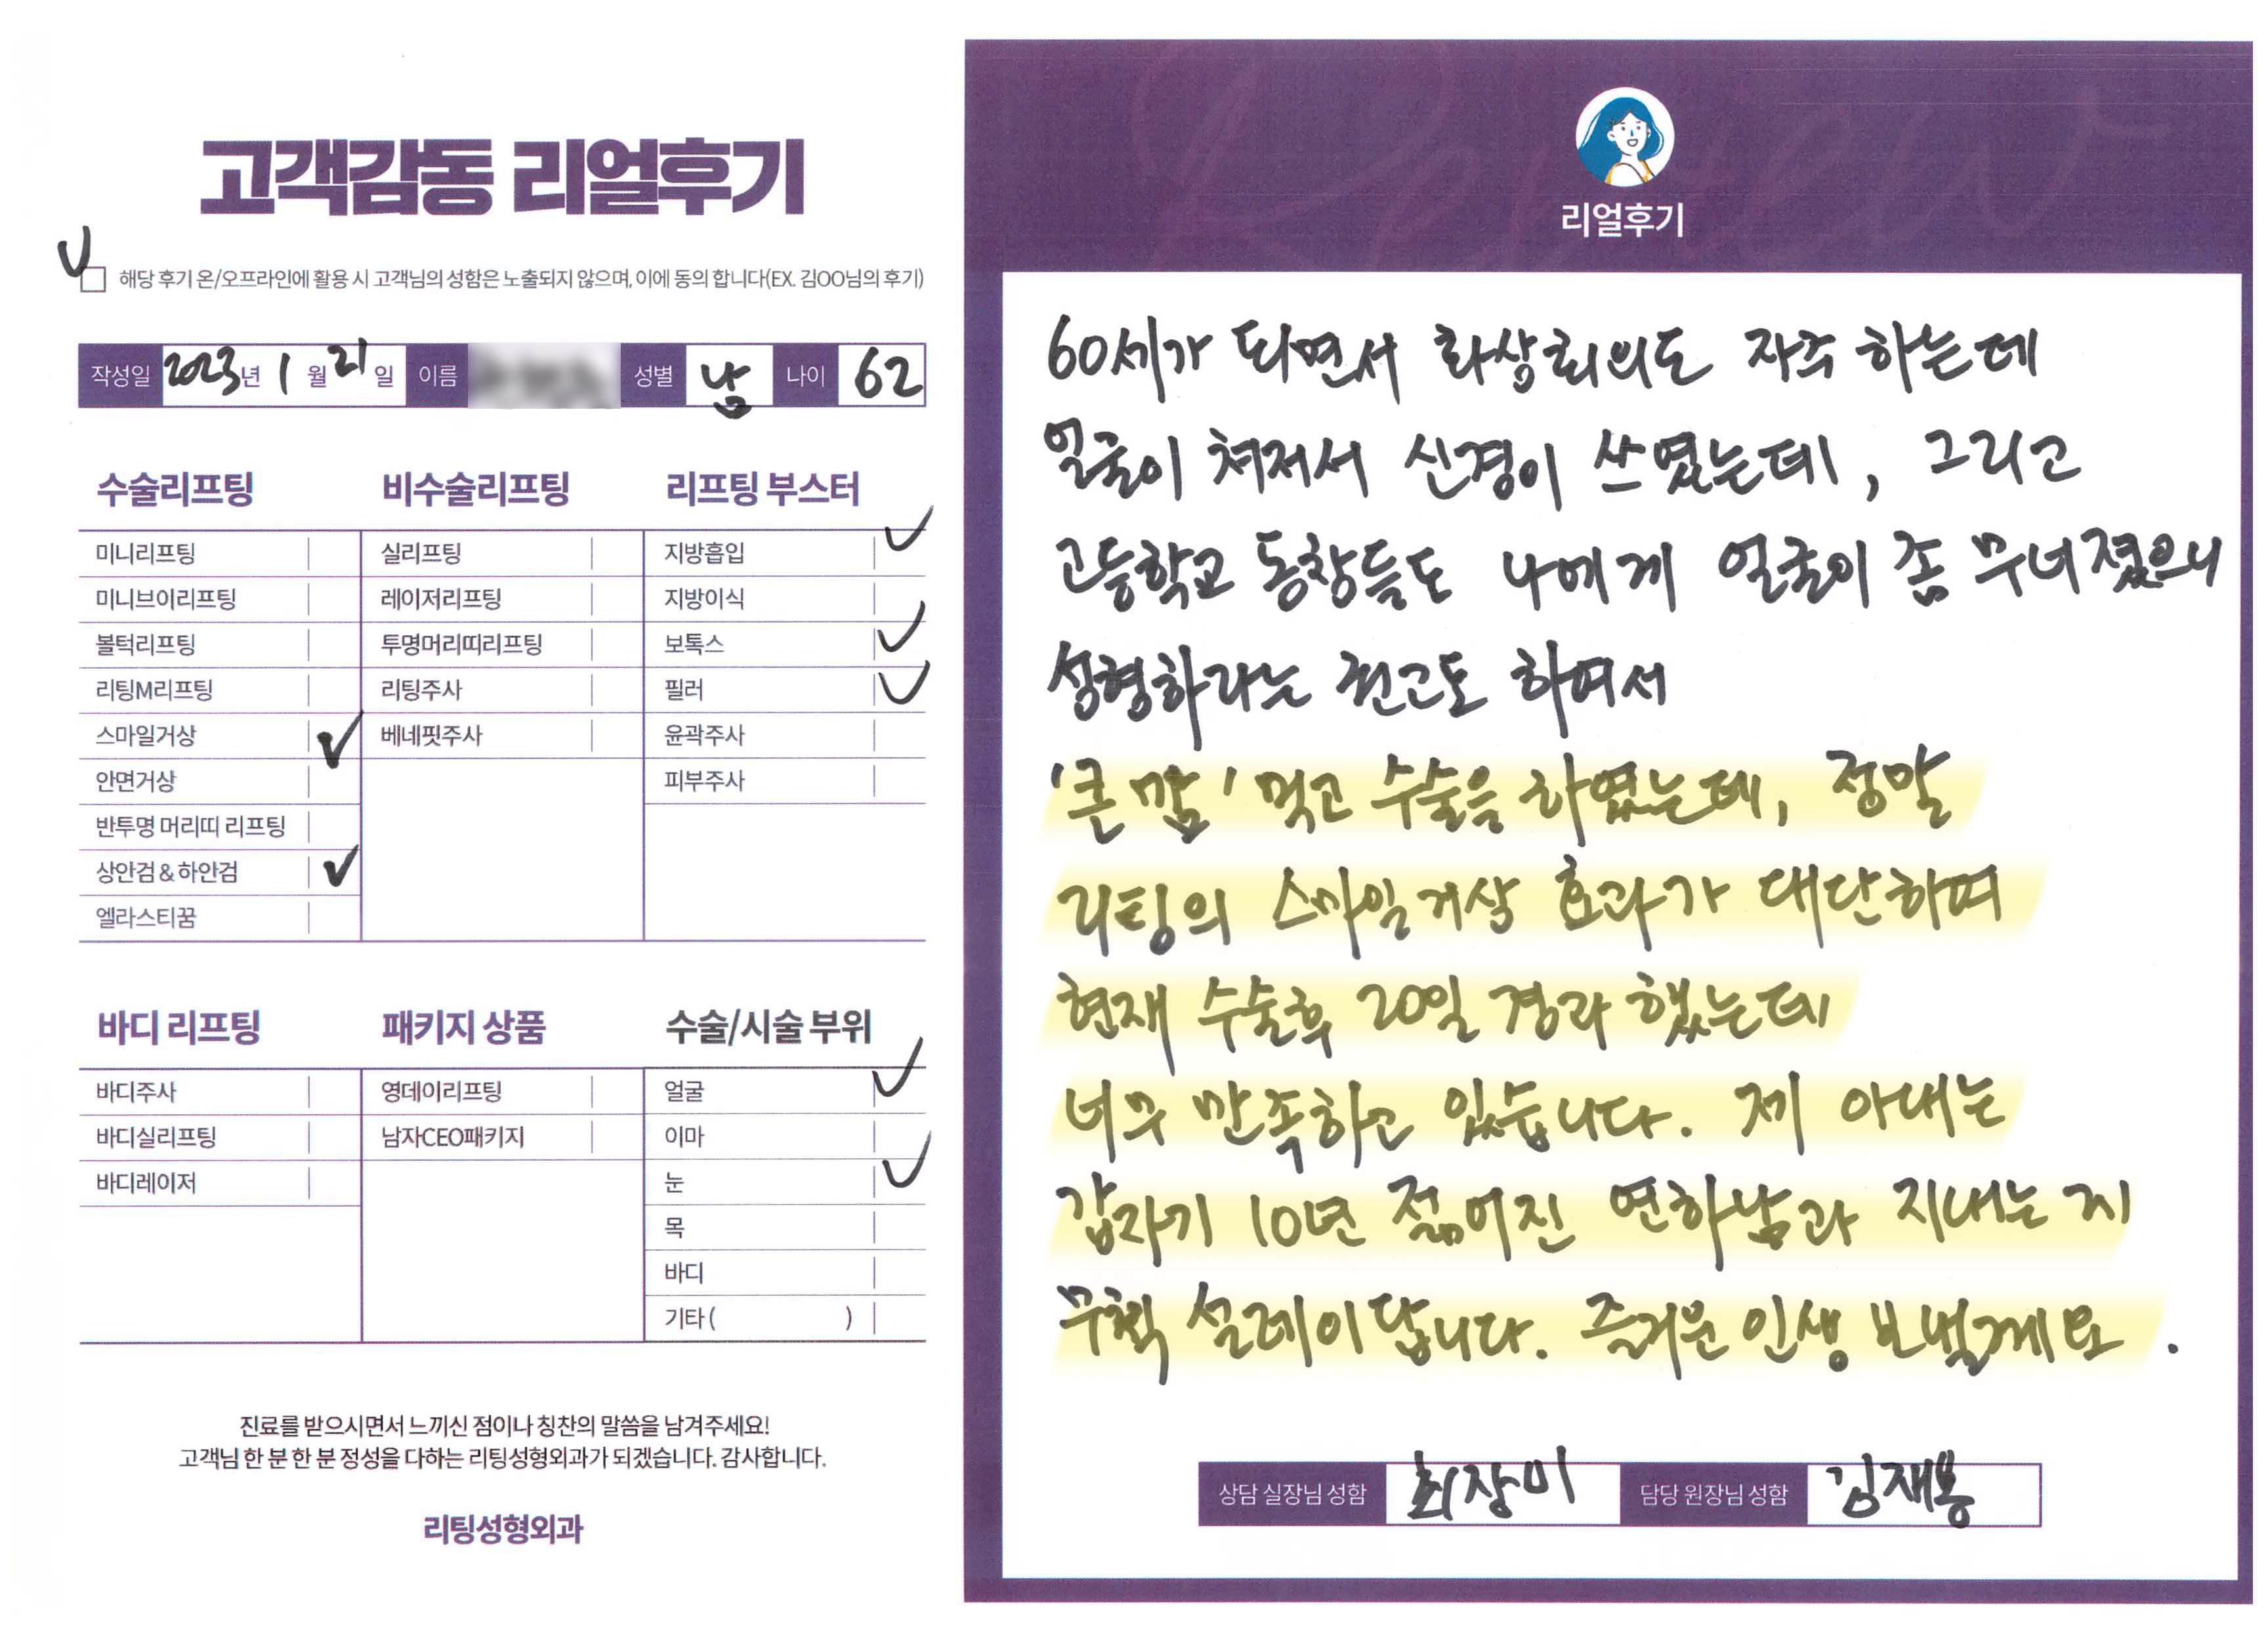 고객감동 리얼후기
해당 후기 온/오프라인에 활용 시 고객님의 성함은 노출되지 않으며, 이에 동의 합니다(EX. 김OO님의 후기)
작성일 2023년 1월 21일 이름 성별 남 나이 62
수술리프팅
미니리프팅
미니브이리프팅
볼턱리프팅
리팅M리프팅
스마일거상
안면거상
반투명 머리띠 리프팅
상안검&하안검
엘라스티꿈
비수술리프팅
실리프팅
레이저리프팅
투명머리띠리프팅
리팅주사
베네핏주사
리프팅 부스터
지방흡입
지방이식
보톡스
필러
윤곽주사
피부주사
바디 리프팅
바디주사
바디실리프팅
바디레이저
패키지 상품
영데이리프팅
남자CEO패키지
수술/시술 부위
얼굴
이마
눈
목
바디
기타( )
진료를 받으시면서 느끼신 점이나 칭찬의 말씀을 남겨주세요!
고객님 한 분 한 분 정성을 다하는 리팅성형외과가 되겠습니다. 감사합니다.
리팅성형외과
리얼후기
60세가 되면서 화상회의도 자주 하는데
얼굴이 쳐져서 신경이 쓰였는데, 그리고
고등학교 동창들도 나에게 얼굴이 좀 무너졌으니
성형하라는 권고도 하여서
'큰 맘' 먹고 수술을 하였는데, 정말
리팅의 스마일거상 효과가 대단하며
현재 수술후 20일 경과 했는데
너무 만족하고 있습니다. 제 아내는
갑자기 10년 젊어진 연하남과 지내는 지
무척 설레이답니다. 즐거운 인생 보낼께요.
상담 실장님 성함 최장미 담당 원장님 성함 김재봉